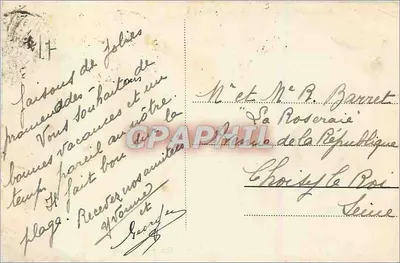 17
faisons de jolies
promenades
Vous souhaitons de
bonnes vacances et un
temps pareil au nôtre.
Il fait bon sur la
plage. Recevez nos amitiés
Yvonne
et
Georges
CPAPHIL
Mr et Me R. Barret
"La Roseraie"
Avenue de la République
Choisy le Roi
Seine